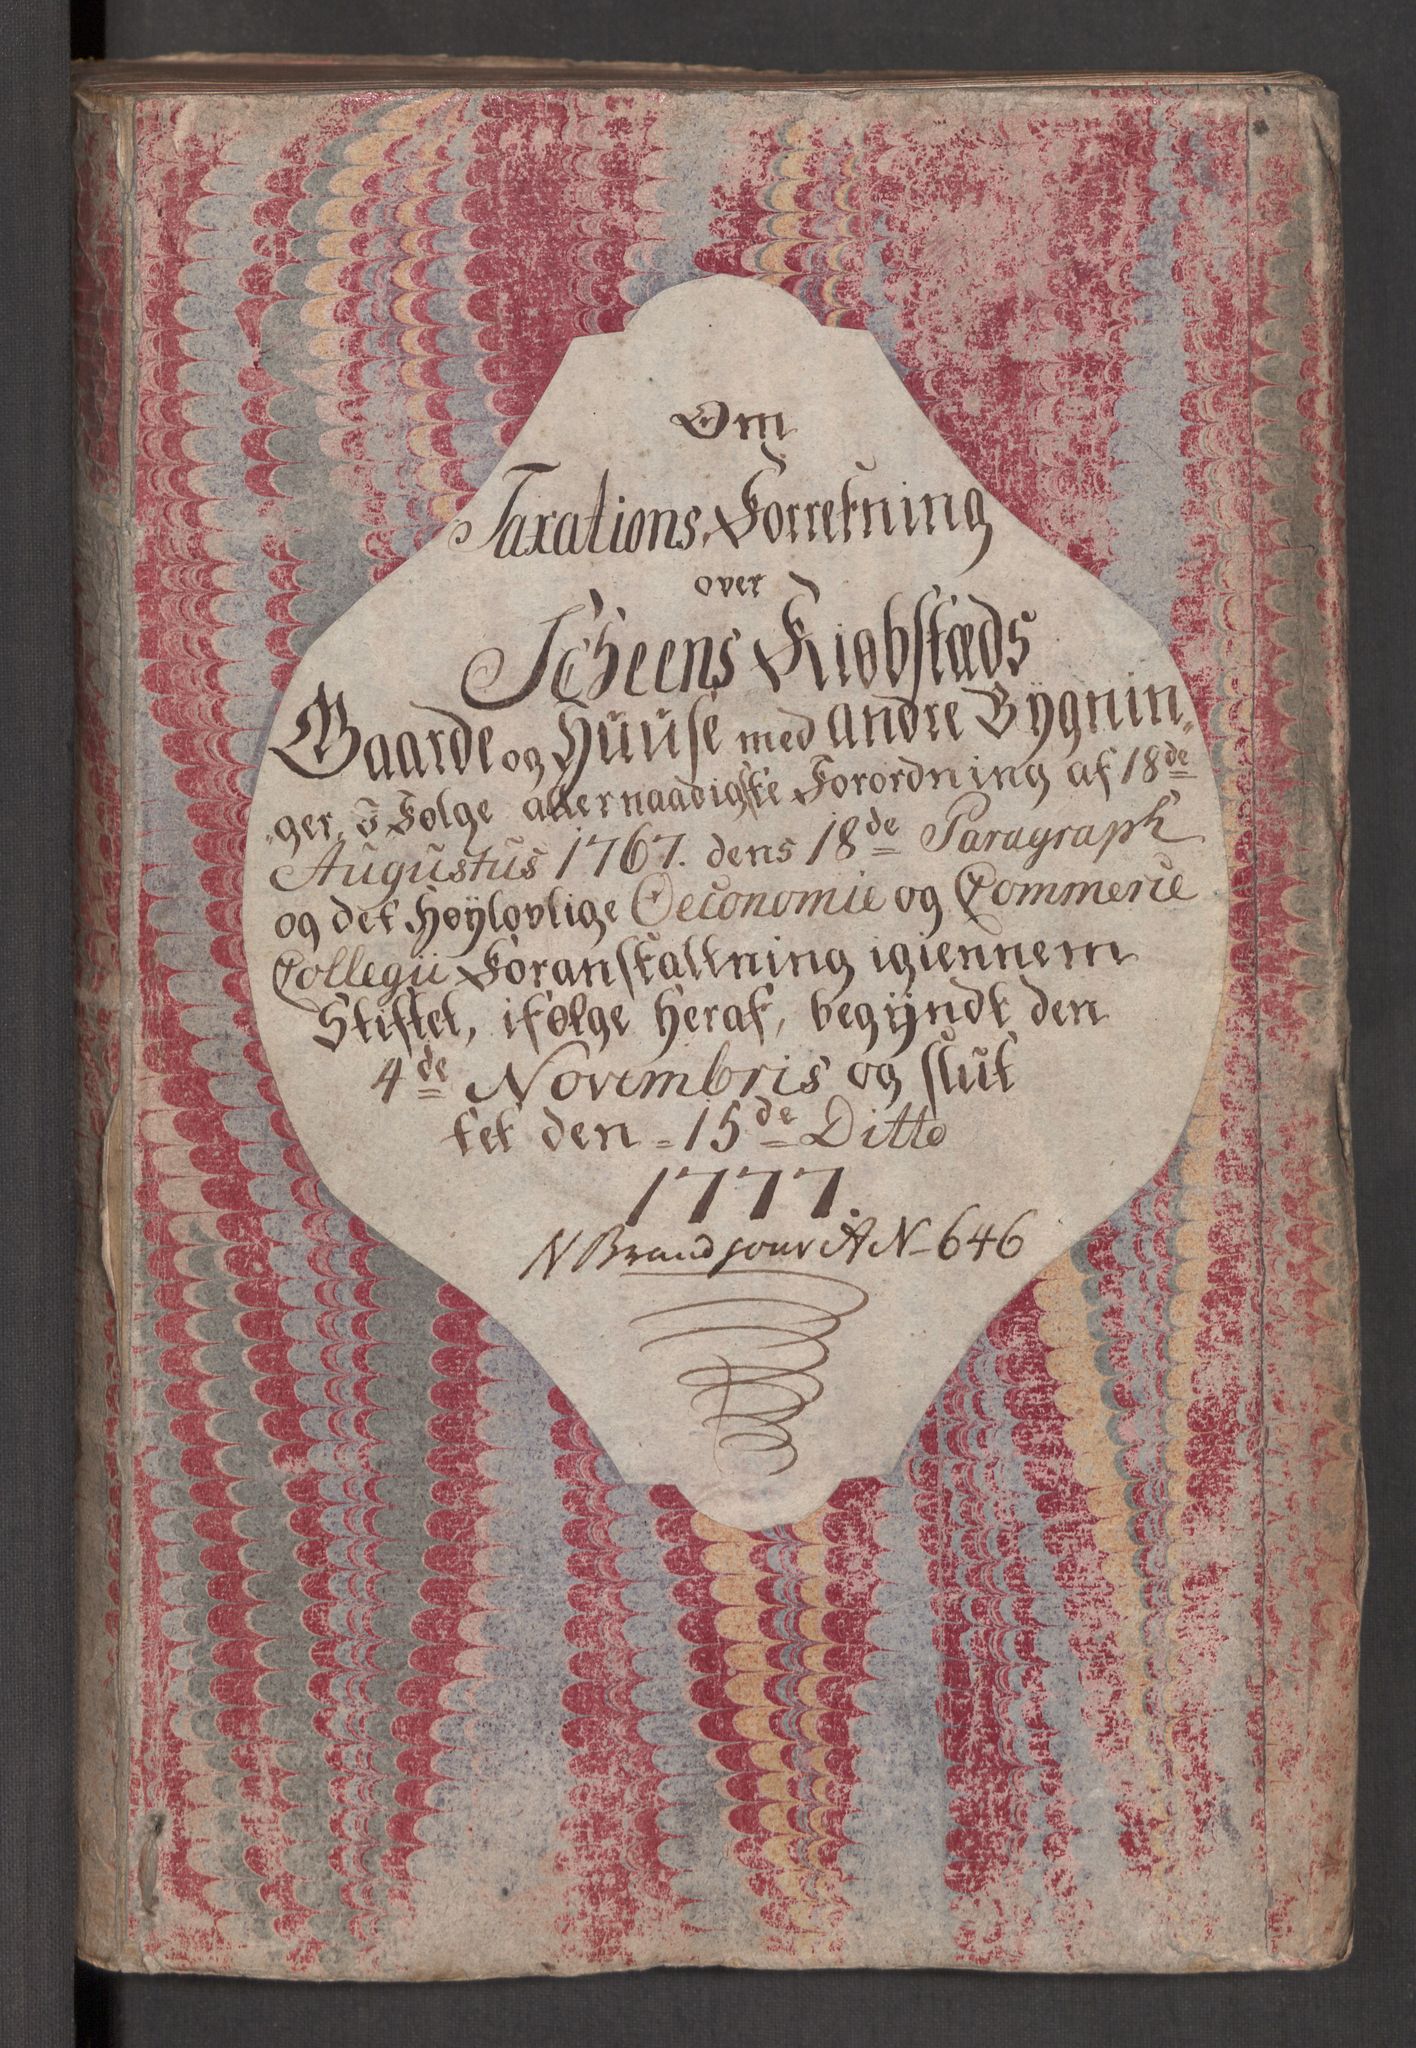 Om
Taxations Forretning
over
Scheens Kiøbstæds
Gaarde og Huuse med andre Bygnin„
„ger, I Følge allernaadigste Forordning af 18de
Augustus 1767. dens 18de Paragraph
og det Høylovlige Oeconomie og Commerie
Collegii Foranstaltning igiennem
Stiftet, ifølge heraf, begyndt den
4de Novembris og slut
tet den = 15de Ditto
1777.
N Brand jour A N- 646